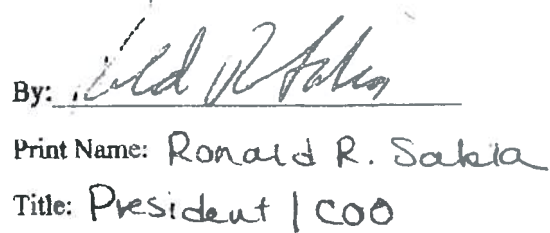 By:
Print Name: Ronald R. Sakia
Title: President | COO